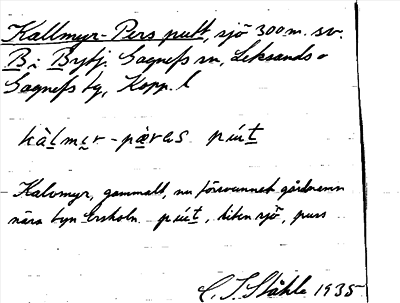 Kallmyr-Pers putt, sjö 300 m. sv.
B i Brtj. Gagnefs sn, Leksands o
Gagnefs tg, Kopp. l
kàlmer-pæ̀ras pút
Kalvmyr, gammalt, nu försvunnet gårdnamn
nära byn putt, liten sjö, puss
C. I. Ståhle 1935